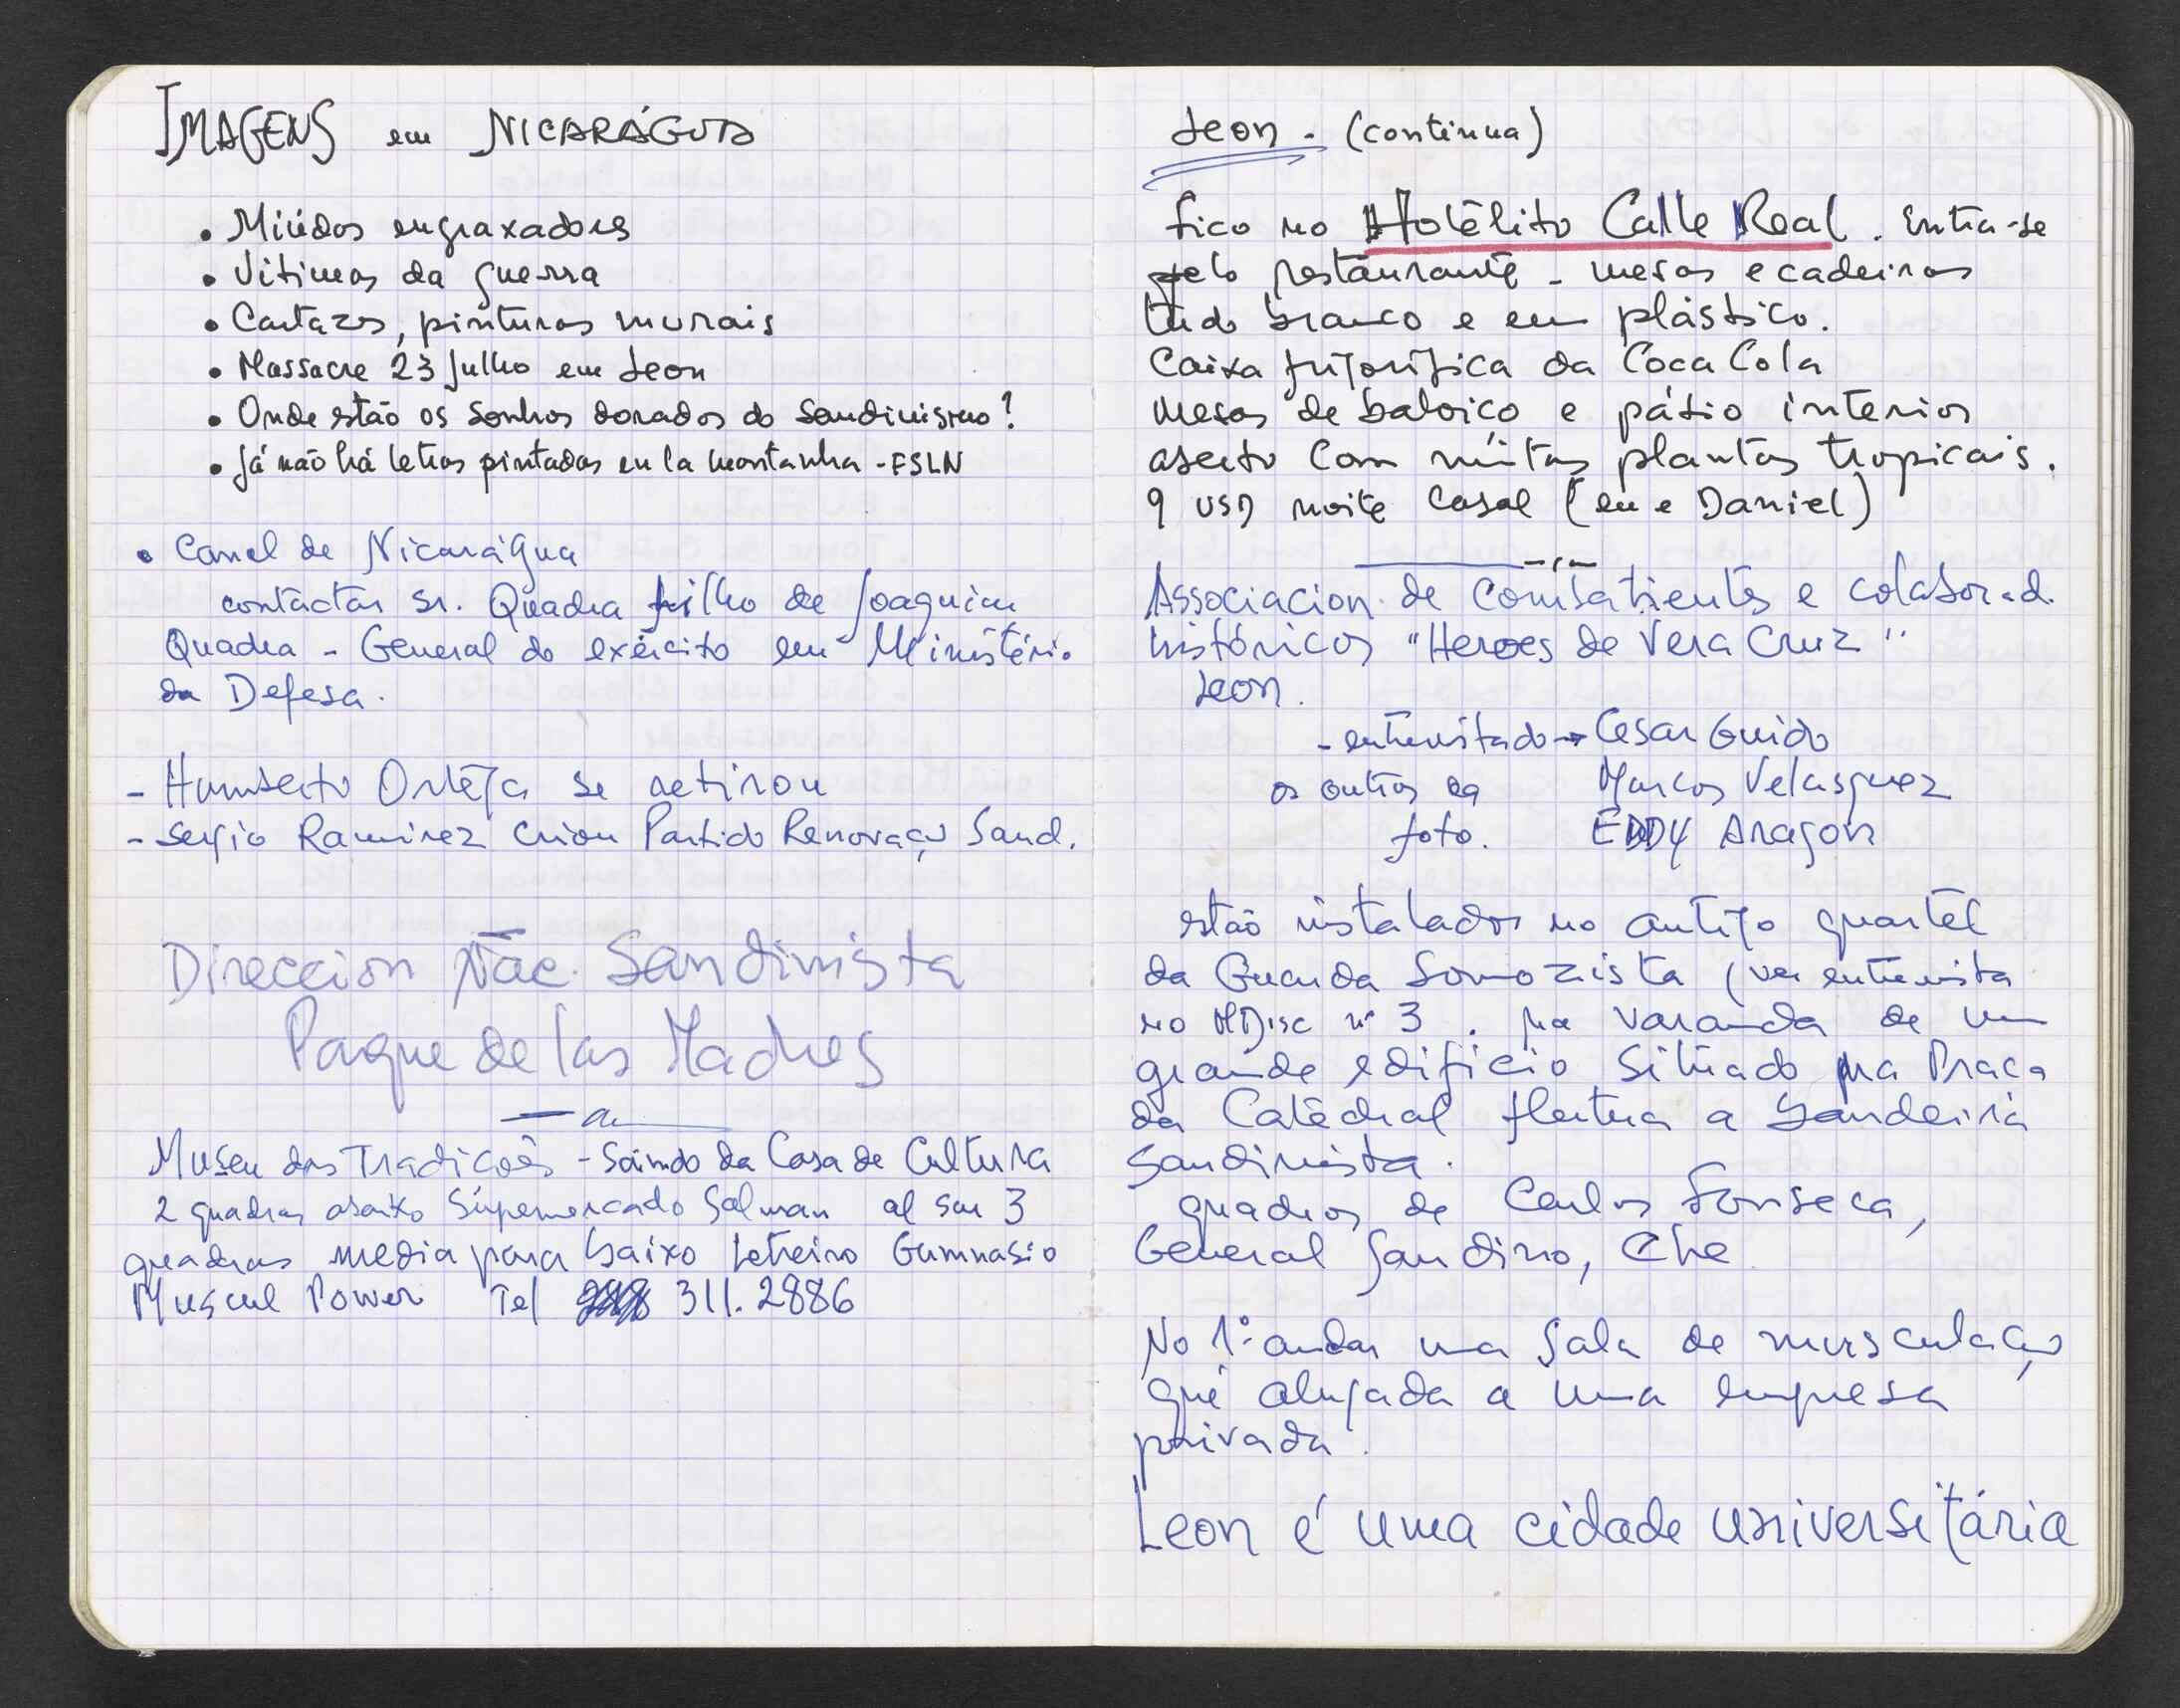 IMAGENS em NICARÁGUA
• Miúdos engraxadores
• Vitimas da guerra
• Cartazes, pinturas murais
• Massacre 23 Julho em Leon
• Onde estão os sonhos dorados do Sandinismo?
• Já não há letras pintadas en la montanha - FSLN
• Canal de Nicarágua
contactar Sr. Quadra filho de Joaquim
Quadra - General do exército em Ministério
da Defesa.
- Humberto Ortega se retirou
- Sergio Ramirez criou Partido Renovação Sand.
Direccion Nac. Sandinista
Parque de las Madres
Museu das Tradições - Saindo da Casa de Cultura
2 quadras abaixo Supemercado Salman al sur 3
quadras media para baixo Letreiro Gumnasio
Muscul Power Tel 311.2886
Leon - (continua)
Fico no Hotelito Calle Real. Entra-se
pelo restaurante - mesas e cadeiras
tudo branco e em plástico.
Caixa frigorifica da Coca Cola
mesas de baloiço e pátio interior
aberto com muitas plantas tropicais.
9 USD noite casal (eu e Daniel)
Associacion de Combatientes e colaborad.
históricos "Heroes de Vera Cruz"
Leon.
- entrevistado → Cesar Guido
os outros da Marcos Velasquez
foto. EDDY Aragon
estão instalados no antigo quartel
da Guarda Somozista (ver entrevista
no MDisc nº 3. Na varanda de um
grande edificio situado na Praça
da Catedral flutua a bandeira
Sandinista.
quadros de Carlos Fonseca,
General Sandino, Che
No 1º andar uma sala de musculação
que alugada a uma empresa
privada.
Leon é uma cidade universitária